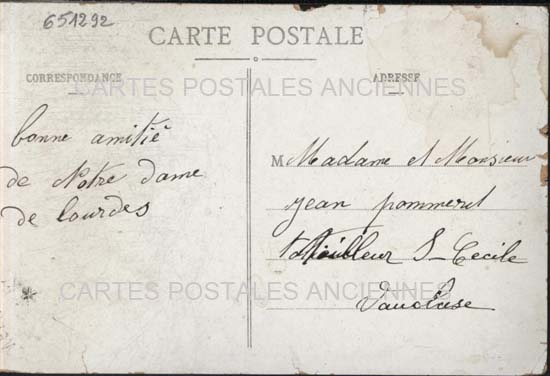 651292
CARTE POSTALE
CORRESPONDANCE
ADRESSE
CARTES POSTALES ANCIENNES
bonne amitié
de Notre dame
de lourdes
M Madame et Monsieur
jean pommeret
tailleur S-Cecile
Vaucluse
CARTES POSTALES ANCIENNES